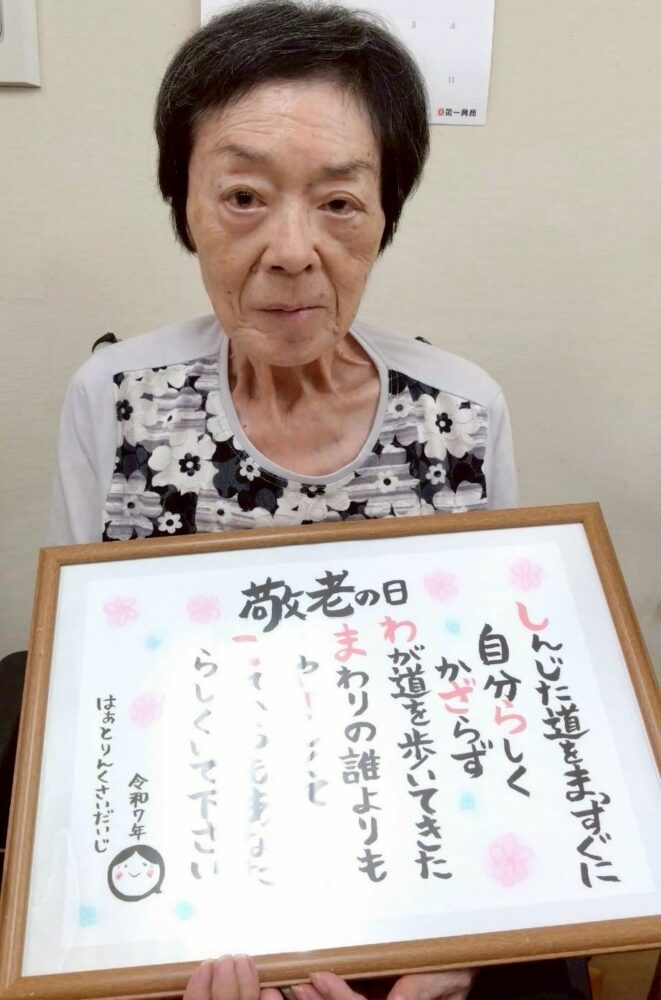 3 4
11
第一興商
敬老の日
しんじた道をまっすぐに
自分らしく
かざらず
わが道を歩いてきた
まわりの誰よりも
もあなた
らしくいて下さい
令和7年
はぁとりんくさいだいじ